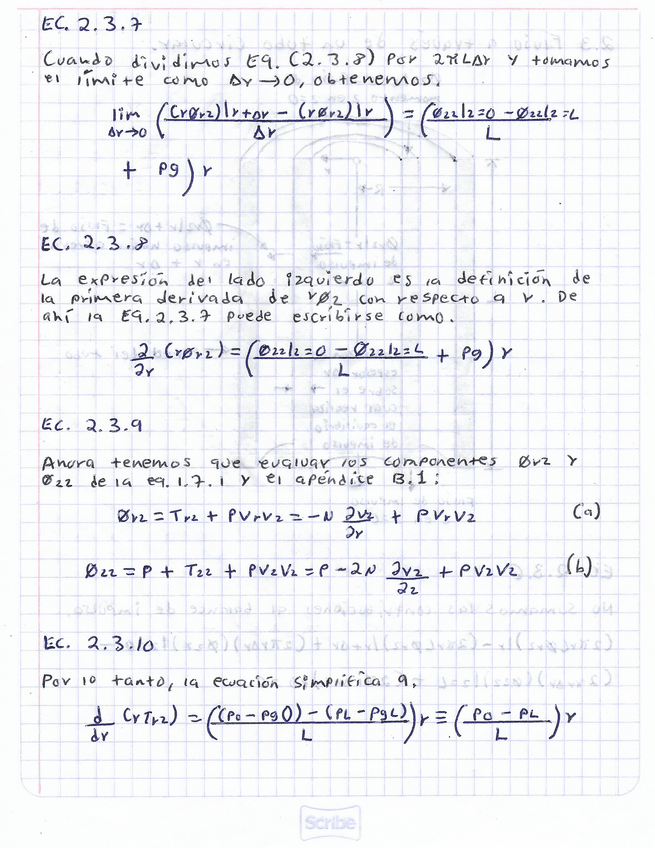 EC. 2.3.7
Cuando dividimos Eq. (2.3.8) por 2πLΔr y tomamos
el límite como Δr→0, obtenemos.
lim Δr→0 ( ((rØrz)|r+Δr − (rØrz)|r) / Δr ) = ( (Øzz|z=0 − Øzz|z=L) / L
+ ρg) r
EC. 2.3.8
La expresión del lado izquierdo es la definición de
la primera derivada de rØz con respecto a r. De
ahí la Eq. 2.3.7 puede escribirse como.
∂/∂r (rØrz) = ( (Øzz|z=0 − Øzz|z=L) / L + ρg) r
EC. 2.3.9
Ahora tenemos que evaluar los componentes Ørz y
Øzz de la eq. 1.7.1 y el apéndice B.1:
Ørz = Trz + ρVrVz = −μ ∂vz/∂r + ρVrVz (a)
Øzz = P + Tzz + ρVzVz = P − 2μ ∂vz/∂z + ρVzVz (b)
EC. 2.3.10
Por lo tanto, la ecuación simplifica a,
d/dr (rTrz) = ( ((p0 − ρg0) − (pL − ρgL)) / L ) r ≡ ( (p0 − pL) / L ) r
Scribe